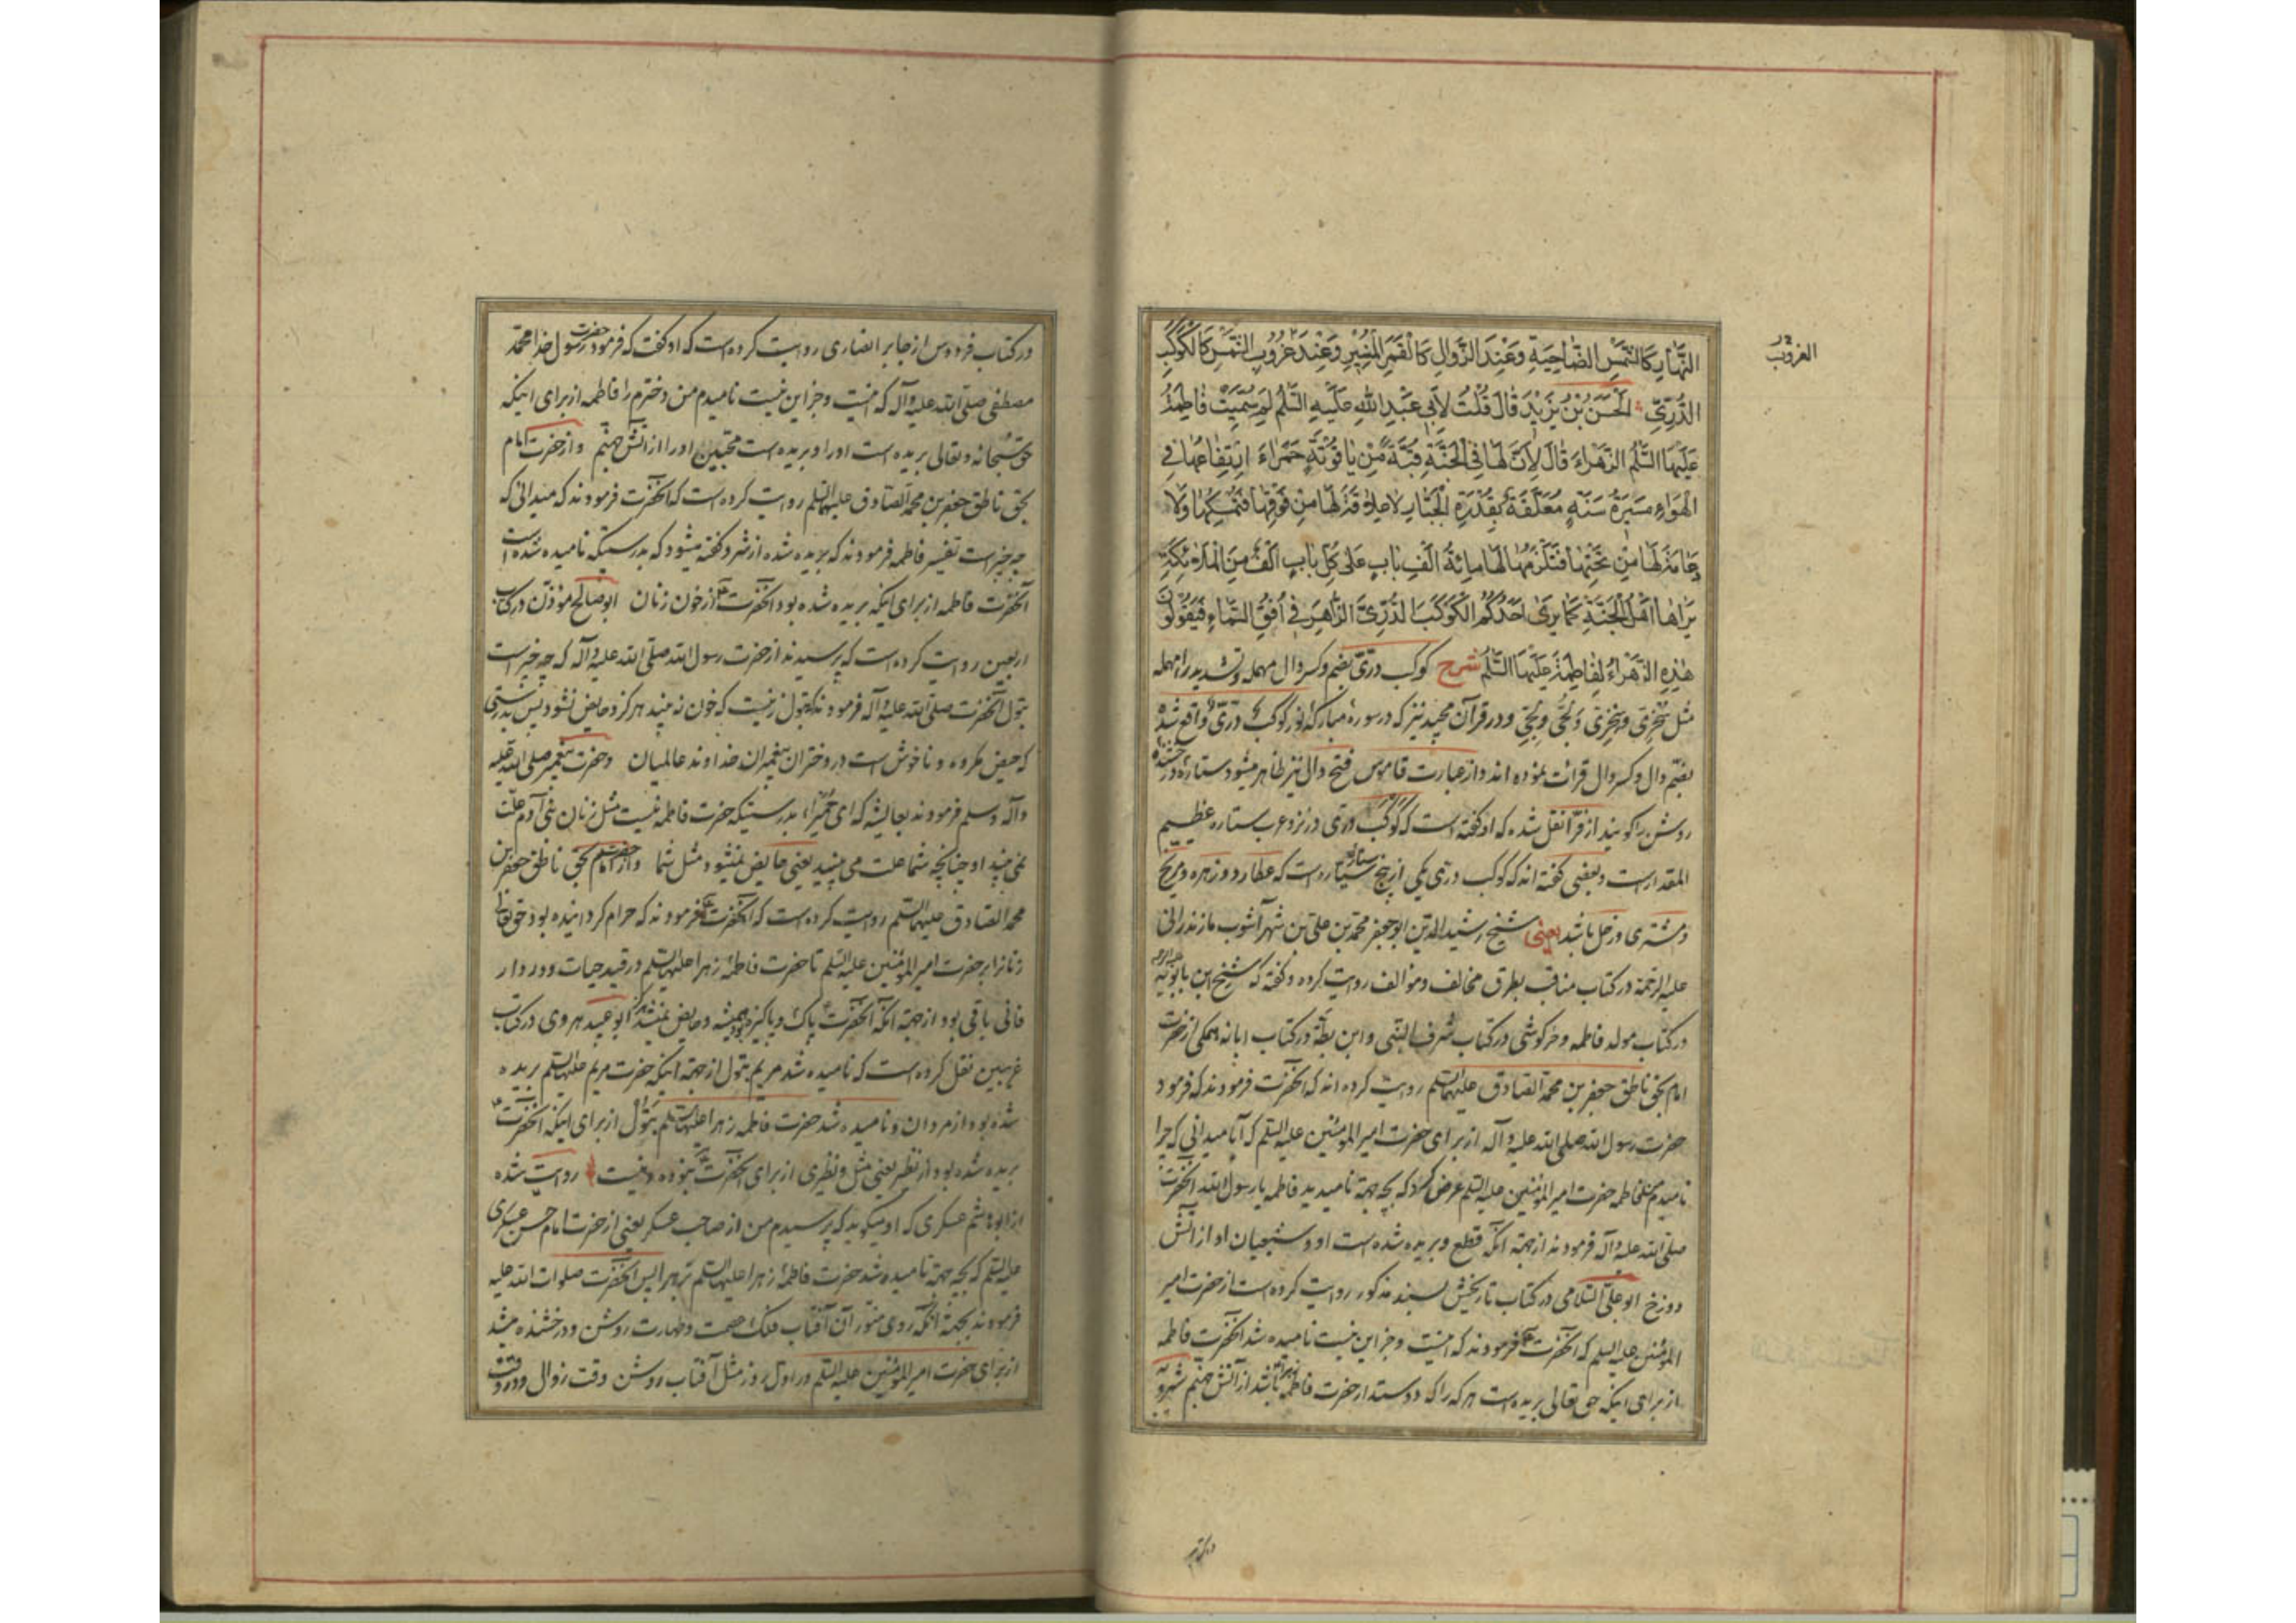 النَّهَارِ كَالشَّمْسِ الضَّاحِيَةِ وَعِنْدَ الزَّوَالِ كَالْقَمَرِ الْمُنِيرِ وَعِنْدَ غُرُوبِ الشَّمْسِ كَالْكَوْكَبِ
الغروب
الدُّرِّيِّ الْحَسَنُ بْنُ يَزِيدَ قَالَ قُلْتُ لِأَبِي عَبْدِ اللّٰهِ عَلَيْهِ السَّلَمُ لِمَ سُمِّيَتْ فَاطِمَةُ
عَلَيْهَا السَّلَمُ الزَّهْرَاءَ قَالَ لِأَنَّ لَهَا فِي الْجَنَّةِ قُبَّةً مِنْ يَاقُوتَةٍ حَمْرَاءَ ارْتِفَاعُهَا فِي
الْهَوَاءِ مَسِيرَةُ سَنَةٍ مُعَلَّقَةً بِقُدْرَةِ الْجَبَّارِ لَا عِلَاقَةَ لَهَا مِنْ فَوْقِهَا فَتُمْسِكَهَا وَلَا
دِعَامَةَ لَهَا مِنْ تَحْتِهَا فَتَلْزَمَهَا لَهَا مِائَةُ أَلْفِ بَابٍ عَلَى كُلِّ بَابٍ أَلْفٌ مِنَ الْمَلَائِكَةِ
يَرَاهَا أَهْلُ الْجَنَّةِ كَمَا يَرَى أَحَدُكُمُ الْكَوْكَبَ الدُّرِّيَّ الزَّاهِرَ فِي أُفُقِ السَّمَاءِ فَيَقُولُونَ
هٰذِهِ الزَّهْرَاءُ لِفَاطِمَةَ عَلَيْهَا السَّلَمُ شرح کوکب درّی بضم و کسر دال مهمله و تشدید راء مهمله
مثل و در قرآن مجید نیز که در سورهٔ مبارکهٔ نور کوکب درّیّ واقع شده
بضم دال و کسر دال قرائت نموده اند و از عبارت قاموس فتح دال نیز ظاهر میشود ستاره درخشنده
روشن را گویند از فرّا نقل شده که او گفته است که کوکب درّی در نزد عرب ستاره عظیم
المقدار است و بعضی گفته اند که کوکب درّی یکی از پنج ستاره سیاره است که عطارد و زهره و مریخ
و مشتری و زحل باشد یعنی شیخ رشید الدین ابو جعفر محمد بن علی بن شهرآشوب مازندرانی
علیه الرحمة در کتاب مناقب بطرق مخالف و موالف روایت کرده و گفته که شیخ ابن بابویه علیه الرحمه
در کتاب مولد فاطمه و خرکوشی در کتاب شرف النبی و ابن بطّه در کتاب ابانه همکی از حضرت
امام بحق ناطق جعفر بن محمد الصادق علیهما السلم روایت کرده اند که آنحضرت فرمودند که فرمود
حضرت رسول الله صلی الله علیه و آله از برای حضرت امیر المؤمنین علیه السلم که آیا میدانی که چرا
نامیدم فاطمه حضرت امیر المؤمنین علیه السلم عرض کرد که بچه جهة نامیدید فاطمه یا رسول الله آنحضرت
صلی الله علیه و آله فرمودند از جهة آنکه قطع و بریده شده است او و شیعیان او از آتش
دوزخ ابو علی السلامی در کتاب تاریخش بسند مذکور روایت کرده است از حضرت امیر
المؤمنین علیه السلم که آنحضرت فرمودند که اینست و جز این نیست نامیده شد آنحضرت فاطمه
از برای اینکه حق تعالی بریده است هر که را که دوستدار حضرت فاطمه باشد از آتش جهنم شیرویه
در کتاب
در کتاب فردوس از جابر انصاری روایت کرده است که او گفت که فرمود حضرت رسول خدا محمد
مصطفی صلی الله علیه و آله که اینست و جز این نیست نامیدم من دخترم را فاطمه از برای اینکه
حق سبحانه و تعالی بریده است او را و بریده است محبین او را از آتش جهنم و از حضرت امام
بحق ناطق جعفر بن محمد الصادق علیهما السلم روایت کرده است که آنحضرت فرمودند که میدانی که
چه چیز است تفسیر فاطمه فرمودند که بریده شده از شر و گفته میشود که بدرستیکه نامیده شده است
آنحضرت فاطمه از برای اینکه بریده شده بود آنحضرت از خون زنان ابو صالح مؤذن در کتاب
اربعین روایت کرده است که پرسیدند از حضرت رسول الله صلی الله علیه و آله که چه چیز است
بتول آنحضرت صلی الله علیه و آله فرمودند که بتول زنیست که خون نه بیند هرگز و حایض نشود پس بدرستی
که حیض مکروه و ناخوش است در دختران پیغمبران خداوند عالمیان و حضرت پیغمبر صلی الله علیه
و آله و سلم فرمودند بعایشه که ای حمیراء بدرستیکه حضرت فاطمه نیست مثل زنان بنی آدم علّت
نمی بیند او چنانچه شما علت می بینید یعنی حایض نمیشود مثل شما و از حضرت امام بحق ناطق جعفر بن
محمد الصادق علیهما السلم روایت کرده است که آنحضرت فرمودند که حرام گردانیده بود حق تعالی
زنانرا بر حضرت امیر المؤمنین علیه السلم تا حضرت فاطمهٔ زهرا علیها السلم در قید حیات و در دار
فانی باقی بود از جهة آنکه آنحضرت پاک و پاکیزه بود همیشه و حایض نمیشد هرگز ابو عبید هروی در کتاب
غریبین نقل کرده است که نامیده شد مریم بتول از جهة اینکه حضرت مریم علیها السلم بریده
شده بود از مردان و نامیده شد حضرت فاطمه زهرا علیها السلم بتول از برای اینکه آنحضرت
بریده شده بود از نظیر یعنی مثل و نظیری از برای آنحضرت نبوده و نیست روایت شده
از ابو هاشم عسکری که او میگوید که پرسیدم من از صاحب عسکر یعنی از حضرت امام حسن عسکری
علیه السلم که بچه جهة نامیده شد حضرت فاطمهٔ زهرا علیها السلم بزهرا پس آنحضرت صلوات الله علیه
فرمودند بجهة آنکه روی منوّر آن آفتاب فلک عصمت و طهارت روشن و درخشنده میشد
از برای حضرت امیر المؤمنین علیه السلم در اول روز مثل آفتاب روشن و وقت زوال و در وقت